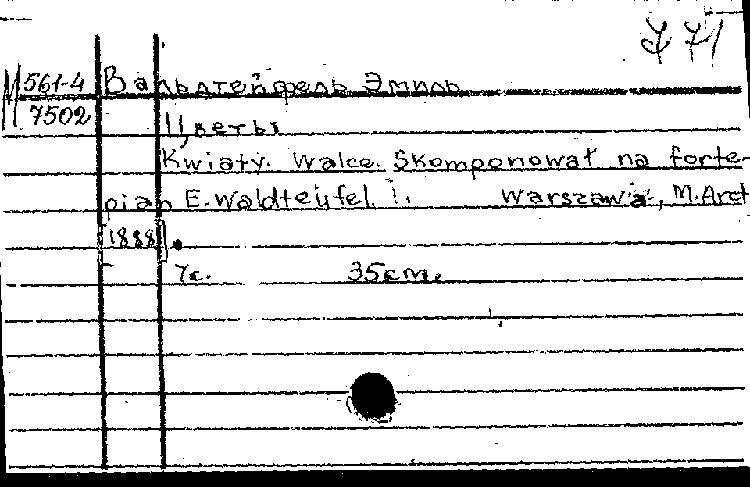 771
М 561-4 Вальдтейфель Эмиль
7502 Цветы
Kwiaty. Walce. Skomponował na forte-
pian E. Waldteufel. Warszawa, M. Arct
[1888].
7с. 35см.